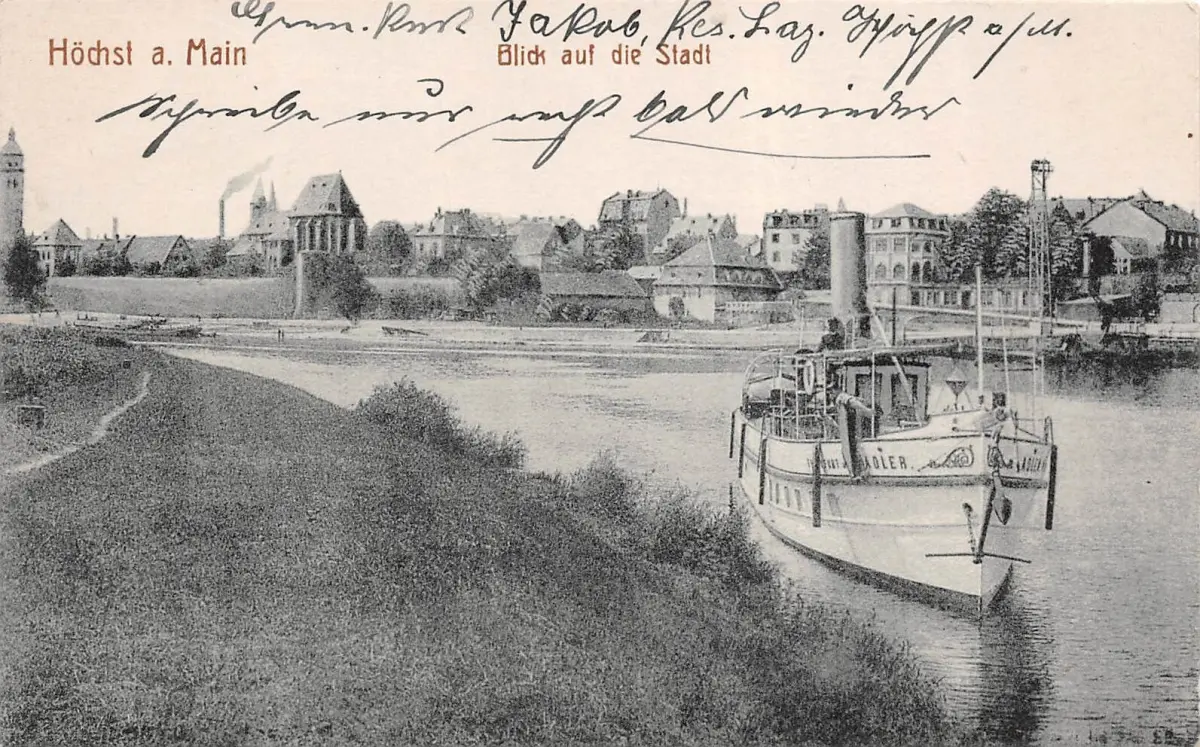 Gren. Kurt Jakob, Res. Laz. Höchst a/M.
Höchst a. Main
Blick auf die Stadt
Schreibe nur recht bald wieder
ADLER.
ADLER